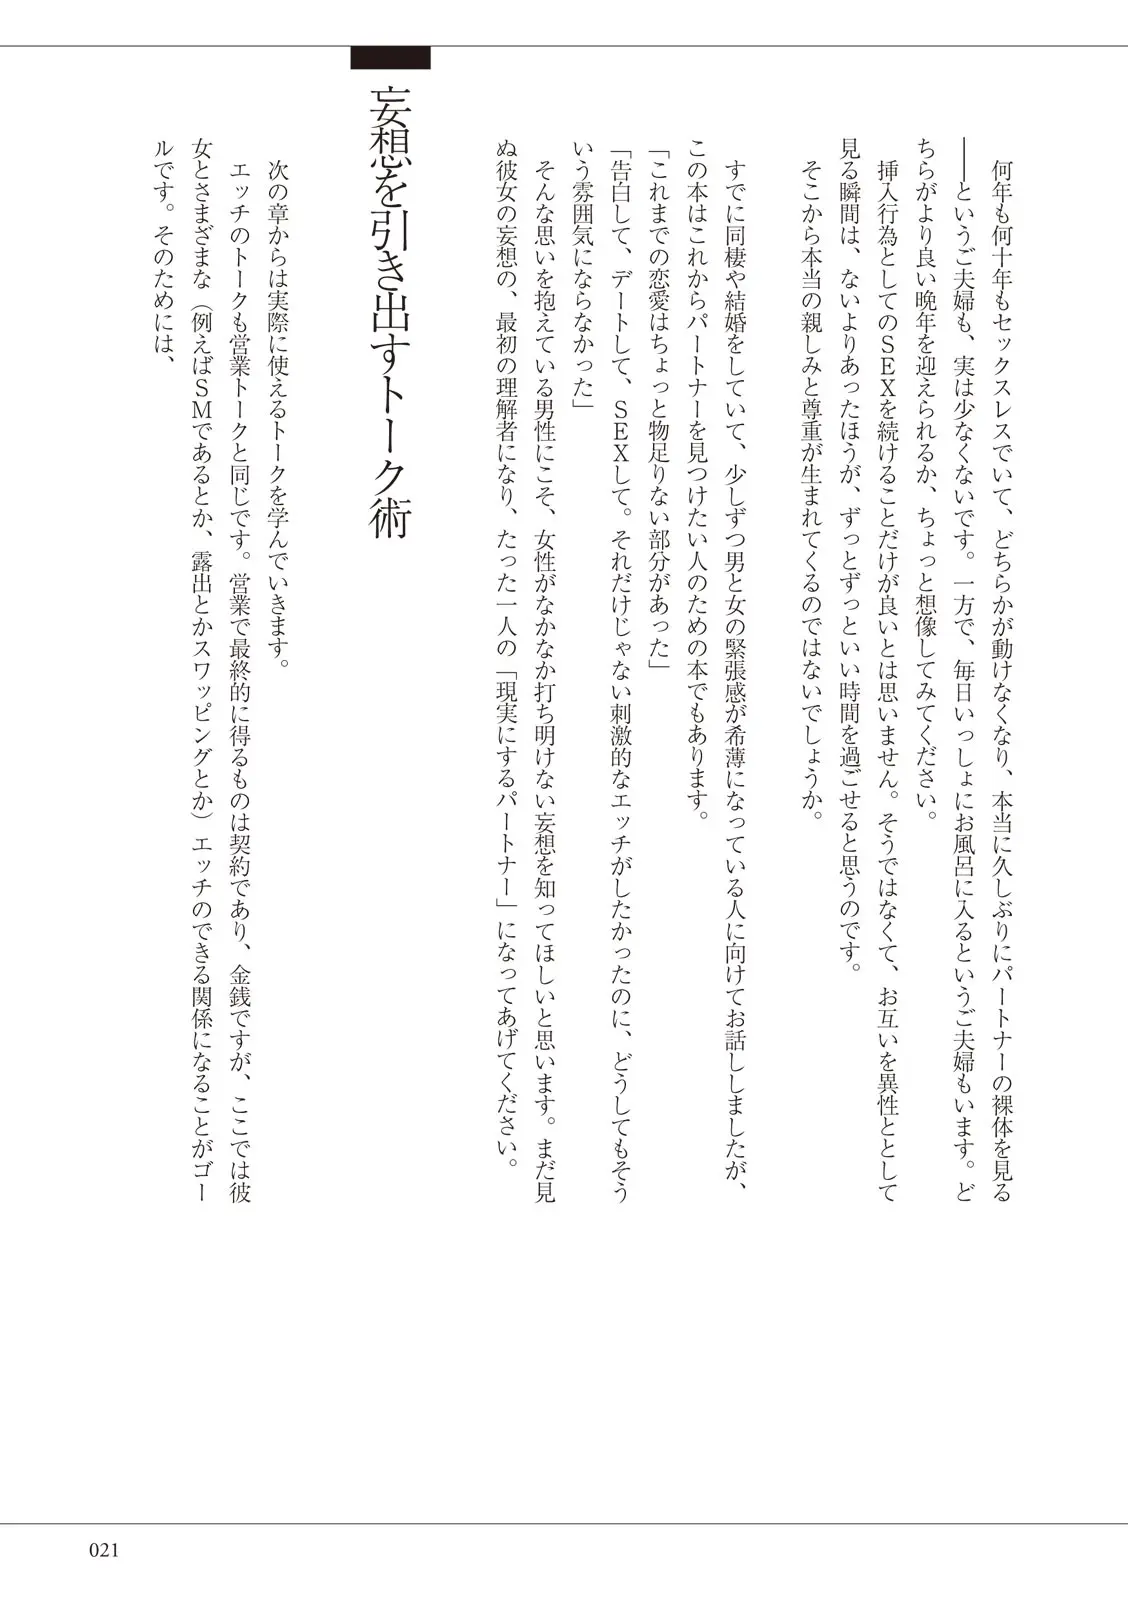 何年も何十年もセックスレスでいて、どちらかが動けなくなり、本当に久しぶりにパートナーの裸体を見る
――というご夫婦も、実は少なくないです。一方で、毎日いっしょにお風呂に入るというご夫婦もいます。ど
ちらがより良い晩年を迎えられるか、ちょっと想像してみてください。
挿入行為としてのSEXを続けることだけが良いとは思いません。そうではなくて、お互いを異性ととして
見る瞬間は、ないよりあったほうが、ずっとずっといい時間を過ごせると思うのです。
そこから本当の親しみと尊重が生まれてくるのではないでしょうか。
すでに同棲や結婚をしていて、少しずつ男と女の緊張感が希薄になっている人に向けてお話ししましたが、
この本はこれからパートナーを見つけたい人のための本でもあります。
「これまでの恋愛はちょっと物足りない部分があった」
「告白して、デートして、SEXして。それだけじゃない刺激的なエッチがしたかったのに、どうしてもそう
いう雰囲気にならなかった」
そんな思いを抱えている男性にこそ、女性がなかなか打ち明けない妄想を知ってほしいと思います。まだ見
ぬ彼女の妄想の、最初の理解者になり、たった一人の「現実にするパートナー」になってあげてください。
妄想を引き出すトーク術
次の章からは実際に使えるトークを学んでいきます。
エッチのトークも営業トークと同じです。営業で最終的に得るものは契約であり、金銭ですが、ここでは彼
女とさまざまな（例えばSMであるとか、露出とかスワッピングとか）エッチのできる関係になることがゴー
ルです。そのためには、
021